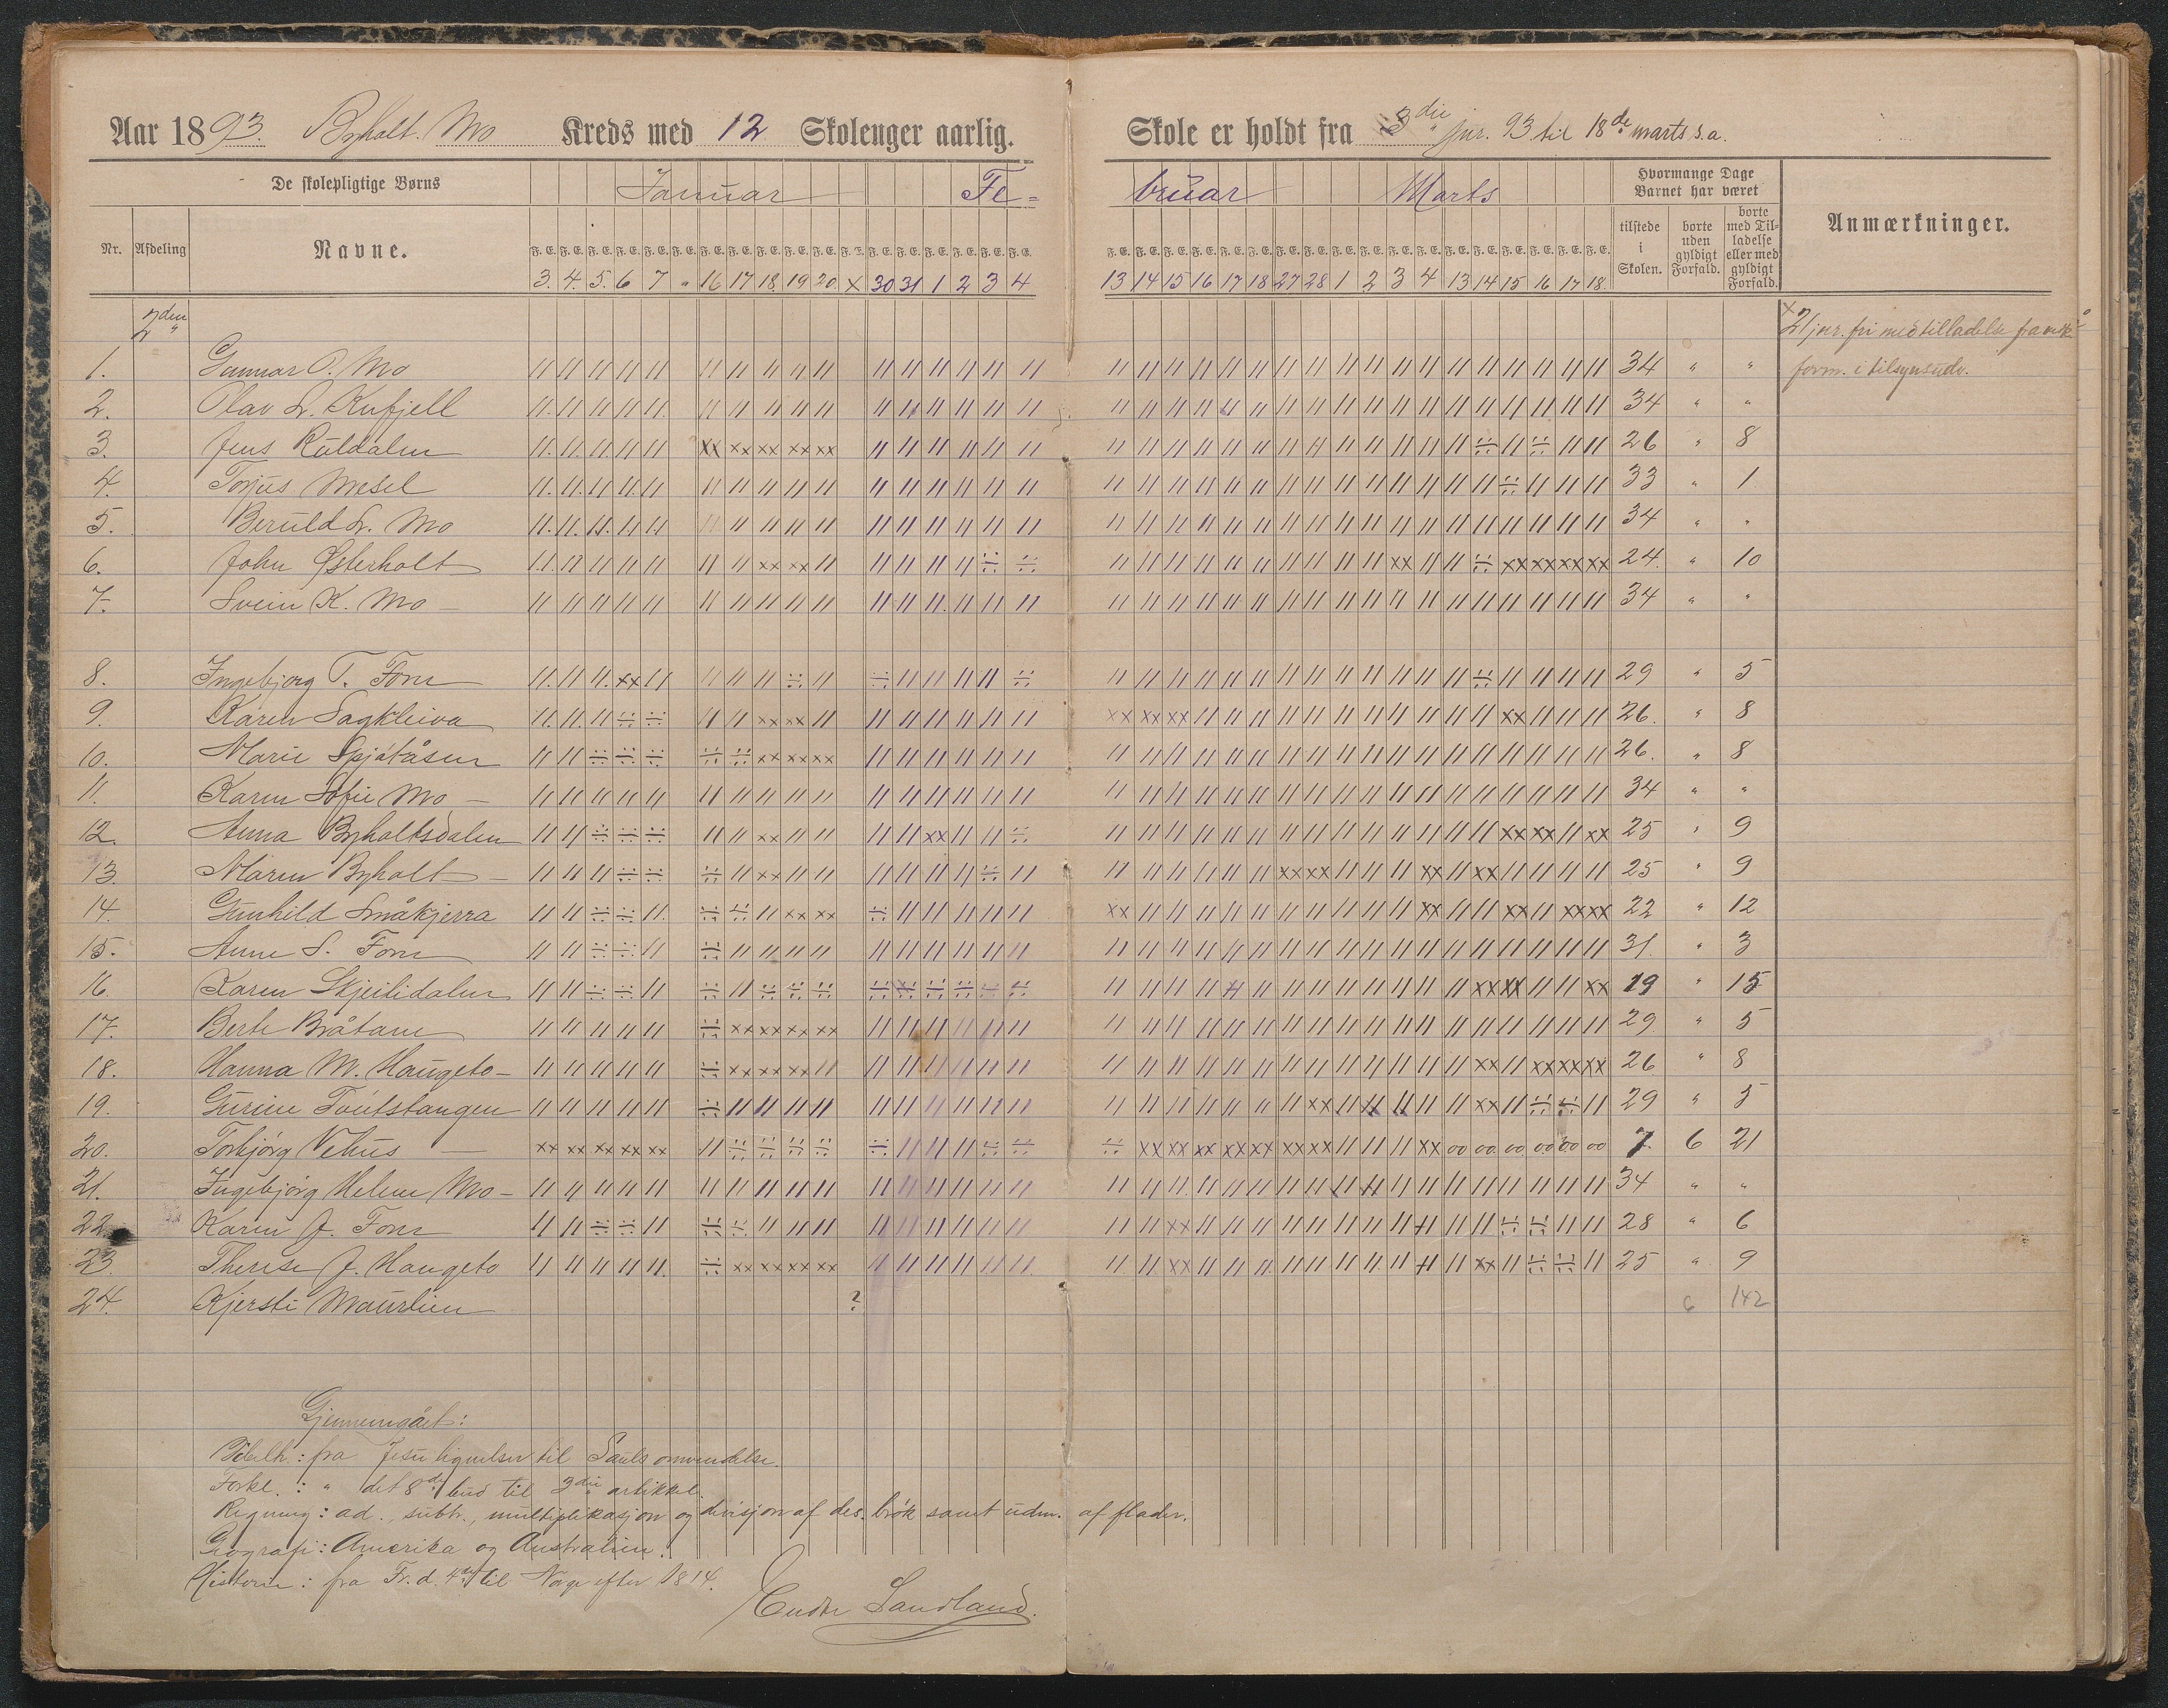 Aar 1893. Byholt. Mo Kreds med 12 Skoleuger aarlig.
Skole er holdt fra 3die jnr. 93 til 18de marts s.a.
De skolepligtige Børns Januar Fe-
bruar Marts Hvormange Dage Barnet har været
Nr. Afdeling Navne. F. E. F. E. F. E. F. E. F. E. F. E. F. E. F. E. F. E. F. E. F. E. F. E. F. E. F. E. F. E. F. E. F. E. F. E.
F. E. F. E. F. E. F. E. F. E. F. E. F. E. F. E. F. E. F. E. F. E. F. E. F. E. F. E. F. E. F. E. F. E. F. E. tilstede i Skolen. borte uden gyldigt Forfald. borte med Tilladelse eller med gyldigt Forfald. Anmærkninger.
3. 4. 5. 6 7 " 16 17 18. 19 20. x 30 31 1 2 3 4
13 14 15 16 17 18 27 28 1 2 3 4 13 14 15 16 17 18.
2den
x 21 jnr. fri med tilladelse fra
form. i tilsynsudv.
1. Gunnar O. Mo 34 " "
2. Olav L. Kufjell 34 " "
3. Jens Røldalen 26 " 8
4. Torjus Mesel 33 " 1
5. Beruld Sr. Mo 34 " "
6. John Østerholt 24. " 10
7. Svein K. Mo 34 " "
8. Ingebjørg T. Fone 29 " 5
9. Karen Sagkleiva 26. " 8
10. Marie Spjótåsen 26. " 8
11. Karen Sofie Mo 34 " "
12. Anna Byholtsdalen 25 " 9
13. Maren Byholt 25 " 9
14. Gunhild Småkjerra 22 " 12
15. Anne S. Fone 31. " 3
16. Karen Skjeilidalen 19 " 15
17. Berte Bråtane 29. " 5
18. Hanna M. Haugeto 26 " 8
19. Gurine Toútstangen 29 " 5
20. Torbjørg Vehus 7. 6 21
21. Ingebjørg Helene Mo 34 " "
22. Karen J. Fone 28 " 6
23. Therese J. Haugeto 25 " 9
24. Kjersti Maurlien ? 6 142
Gjennemgået:
Bibelh.: fra Jesu lignelser til Sauls omvendelse.
Forkl.: " det 8de bud til 3die artikkel.
Regning: ad., subtr., multiplikasjon og divisjon af des. brøk samt udm. af flader.
Geografi: Amerika og Australien.
Historie: fra Fr. d. 4de til Norge efter 1814.
Endre Sandland.